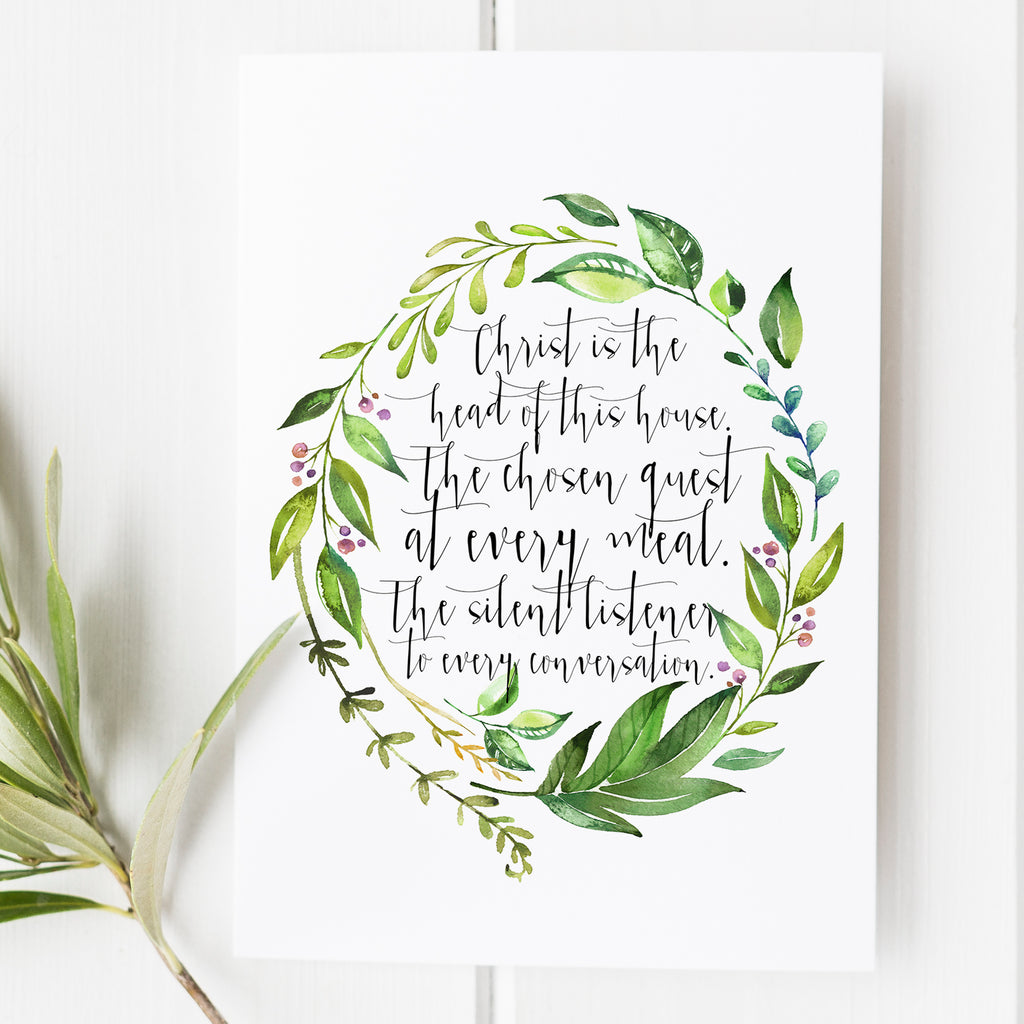 Christ is the
head of this house.
The chosen guest
at every meal.
The silent listener
to every conversation.